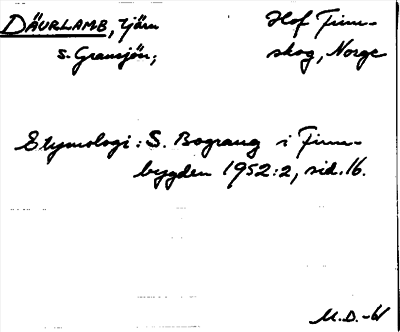 DÄURLAMB, tjärn
s. Gransjön;
Hof Finn-
skog, Norge
Etymologi: S. Bograng i Finn-
bygden 1952:2, sid. 16.
M.D.-61